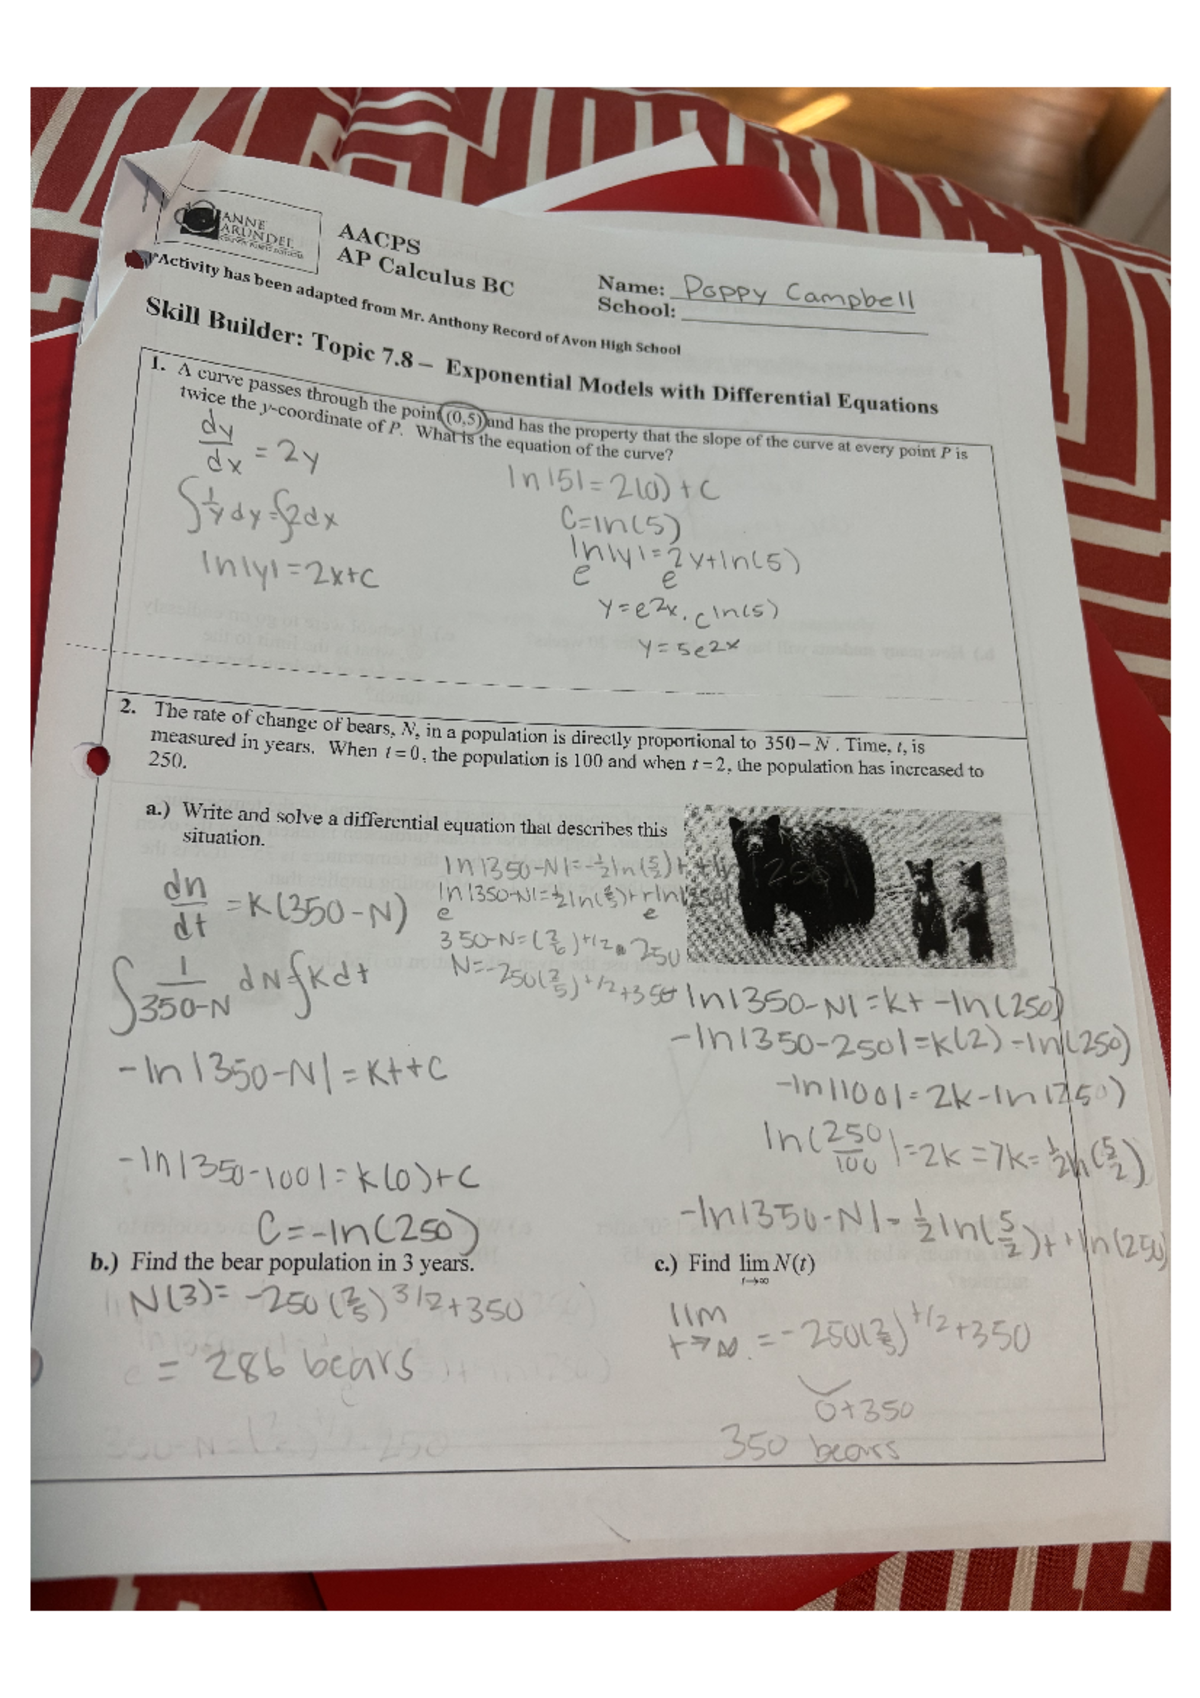 ANNE
ARUNDEL
AACPS
AP Calculus BC
Name: Poppy Campbell
School:
*Activity has been adapted from Mr. Anthony Record of Avon High School
Skill Builder: Topic 7.8 – Exponential Models with Differential Equations
1. A curve passes through the point (0,5) and has the property that the slope of the curve at every point P is
twice the y-coordinate of P. What is the equation of the curve?
dy/dx = 2y
∫ 1/y dy = ∫2dx
ln|y| = 2x+C
ln|5| = 2(0)+C
C=ln(5)
ln|y|=2y+ln(5)
e e
y=e2x. eln(5)
y=5e2x
2. The rate of change of bears, N, in a population is directly proportional to 350 – N . Time, t, is
measured in years. When t = 0, the population is 100 and when t = 2, the population has increased to
250.
a.) Write and solve a differential equation that describes this
situation.
dn/dt = K(350-N)
∫ 1/350-N dN ∫kdt
-ln|350-N| = Kt+C
-ln|350-100| = k(0)+C
C=-ln(250)
ln|350-N|=-½ln(5/2)t
e e
N=-250(2/5)t/2+350
ln|350-N|=kt-ln(250)
-ln|350-250|=k(2)-ln(250)
-ln|100|=2k-ln(250)
ln(250/100)=2k=7k=½ln(5/2)
-ln|350-N|=½ln(5/2)t+ln(250)
b.) Find the bear population in 3 years.
N(3)= -250(2/5)3/2+350
= 286 bears
c.) Find lim N(t)
t→∞
lim t→∞ =-250(2/5)t/2+350
0+350
350 bears